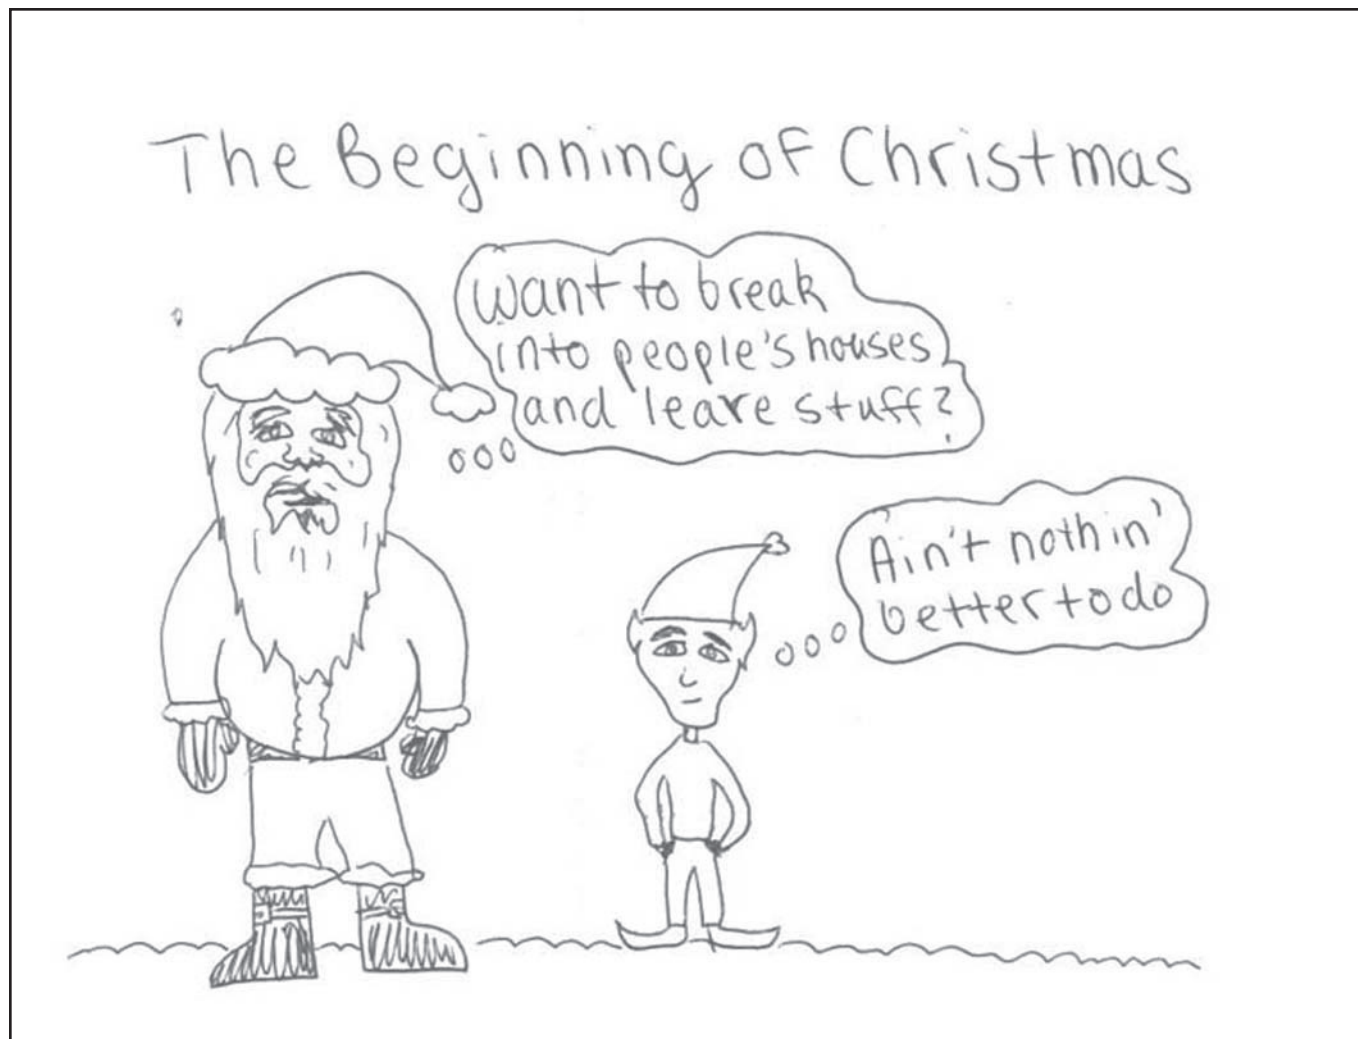 The Beginning of Christmas
Want to break
into people's houses
and leave stuff?
Ain't nothin'
better to do